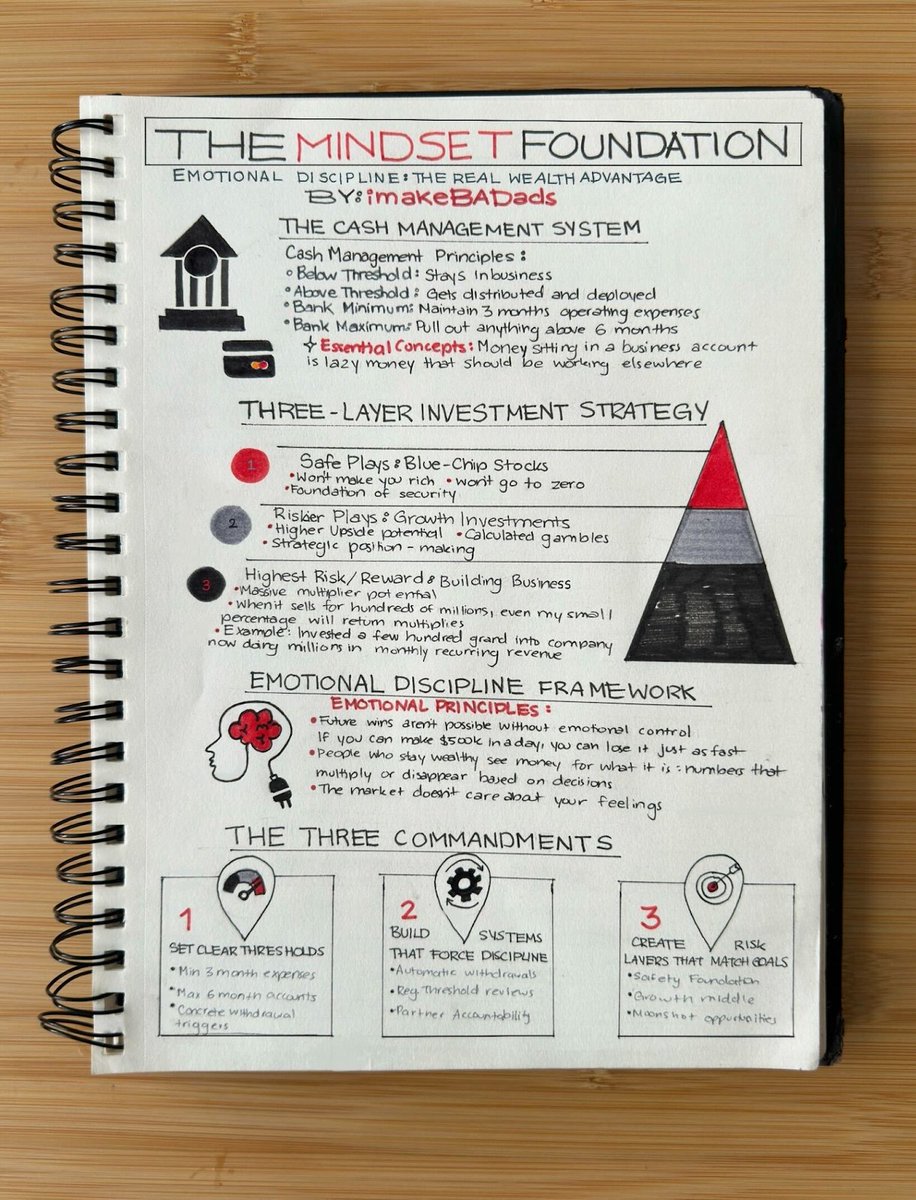 THE MINDSET FOUNDATION
EMOTIONAL DISCIPLINE: THE REAL WEALTH ADVANTAGE
BY: imakeBADads
THE CASH MANAGEMENT SYSTEM
Cash Management Principles:
Below Threshold: Stays in business
Above Threshold: Gets distributed and deployed
Bank Minimum: Maintain 3 months operating expenses
Bank Maximum: Pull out anything above 6 months
Essential Concepts: Money sitting in a business account
is lazy money that should be working elsewhere
THREE-LAYER INVESTMENT STRATEGY
1
Safe Plays: Blue-Chip Stocks
• Won't make you rich • won't go to zero
• Foundation of security
2
Riskier Plays: Growth Investments
• Higher Upside potential • Calculated gambles
• Strategic position-making
3
Highest Risk/Reward: Building Business
• Massive multiplier potential
• When it sells for hundreds of millions, even my small
percentage will return multiples
• Example: Invested a few hundred grand into company
now doing millions in monthly recurring revenue
EMOTIONAL DISCIPLINE FRAMEWORK
EMOTIONAL PRINCIPLES:
• Future wins aren't possible without emotional control
If you can make $500k in a day, you can lose it just as fast
• People who stay wealthy see money for what it is: numbers that
multiply or disappear based on decisions
• The market doesn't care about your feelings
THE THREE COMMANDMENTS
1
SET CLEAR THRESHOLDS
• Min 3 month expenses
• Max 6 month accounts
• Concrete withdrawal
triggers
2
BUILD SYSTEMS
THAT FORCE DISCIPLINE
• Automatic withdrawals
• Reg Threshold reviews
• Partner Accountability
3
CREATE RISK
LAYERS THAT MATCH GOALS
• Safety Foundation
• Growth middle
• Moonshot oppurnities